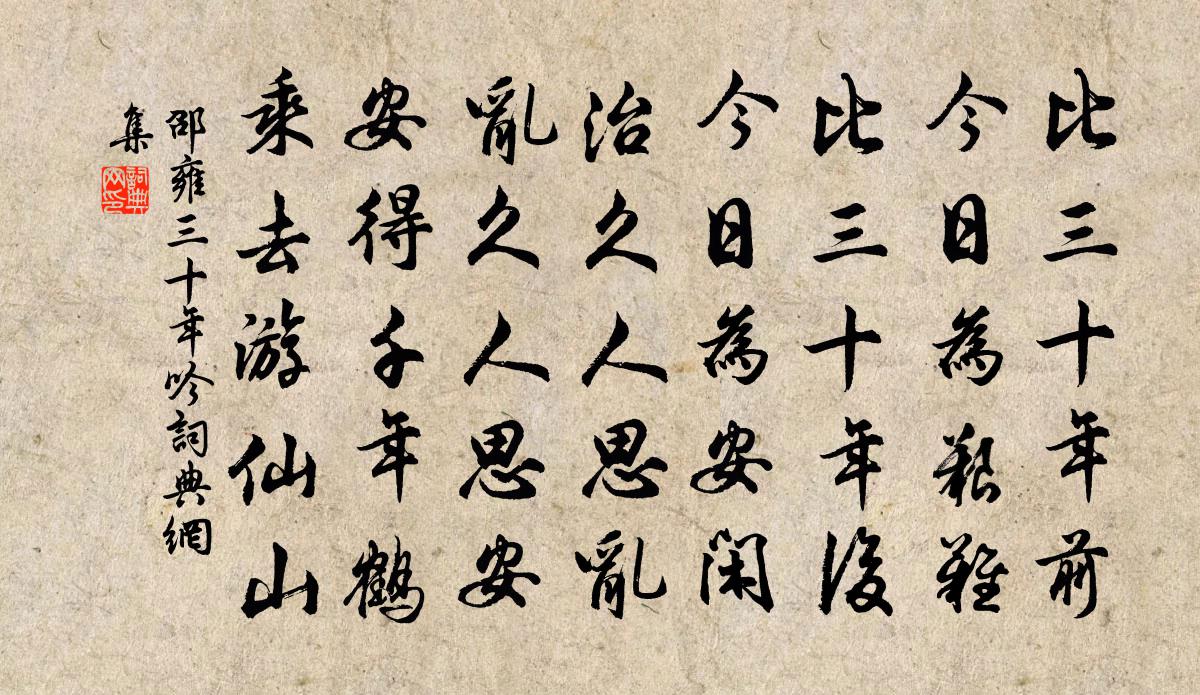 比三十年前
今日為艱難
比三十年後
今日為安閑
治久人思亂
亂久人思安
安得千年鶴
乘去游仙山
邵雍三十年吟詞典網
集
詞典
网印